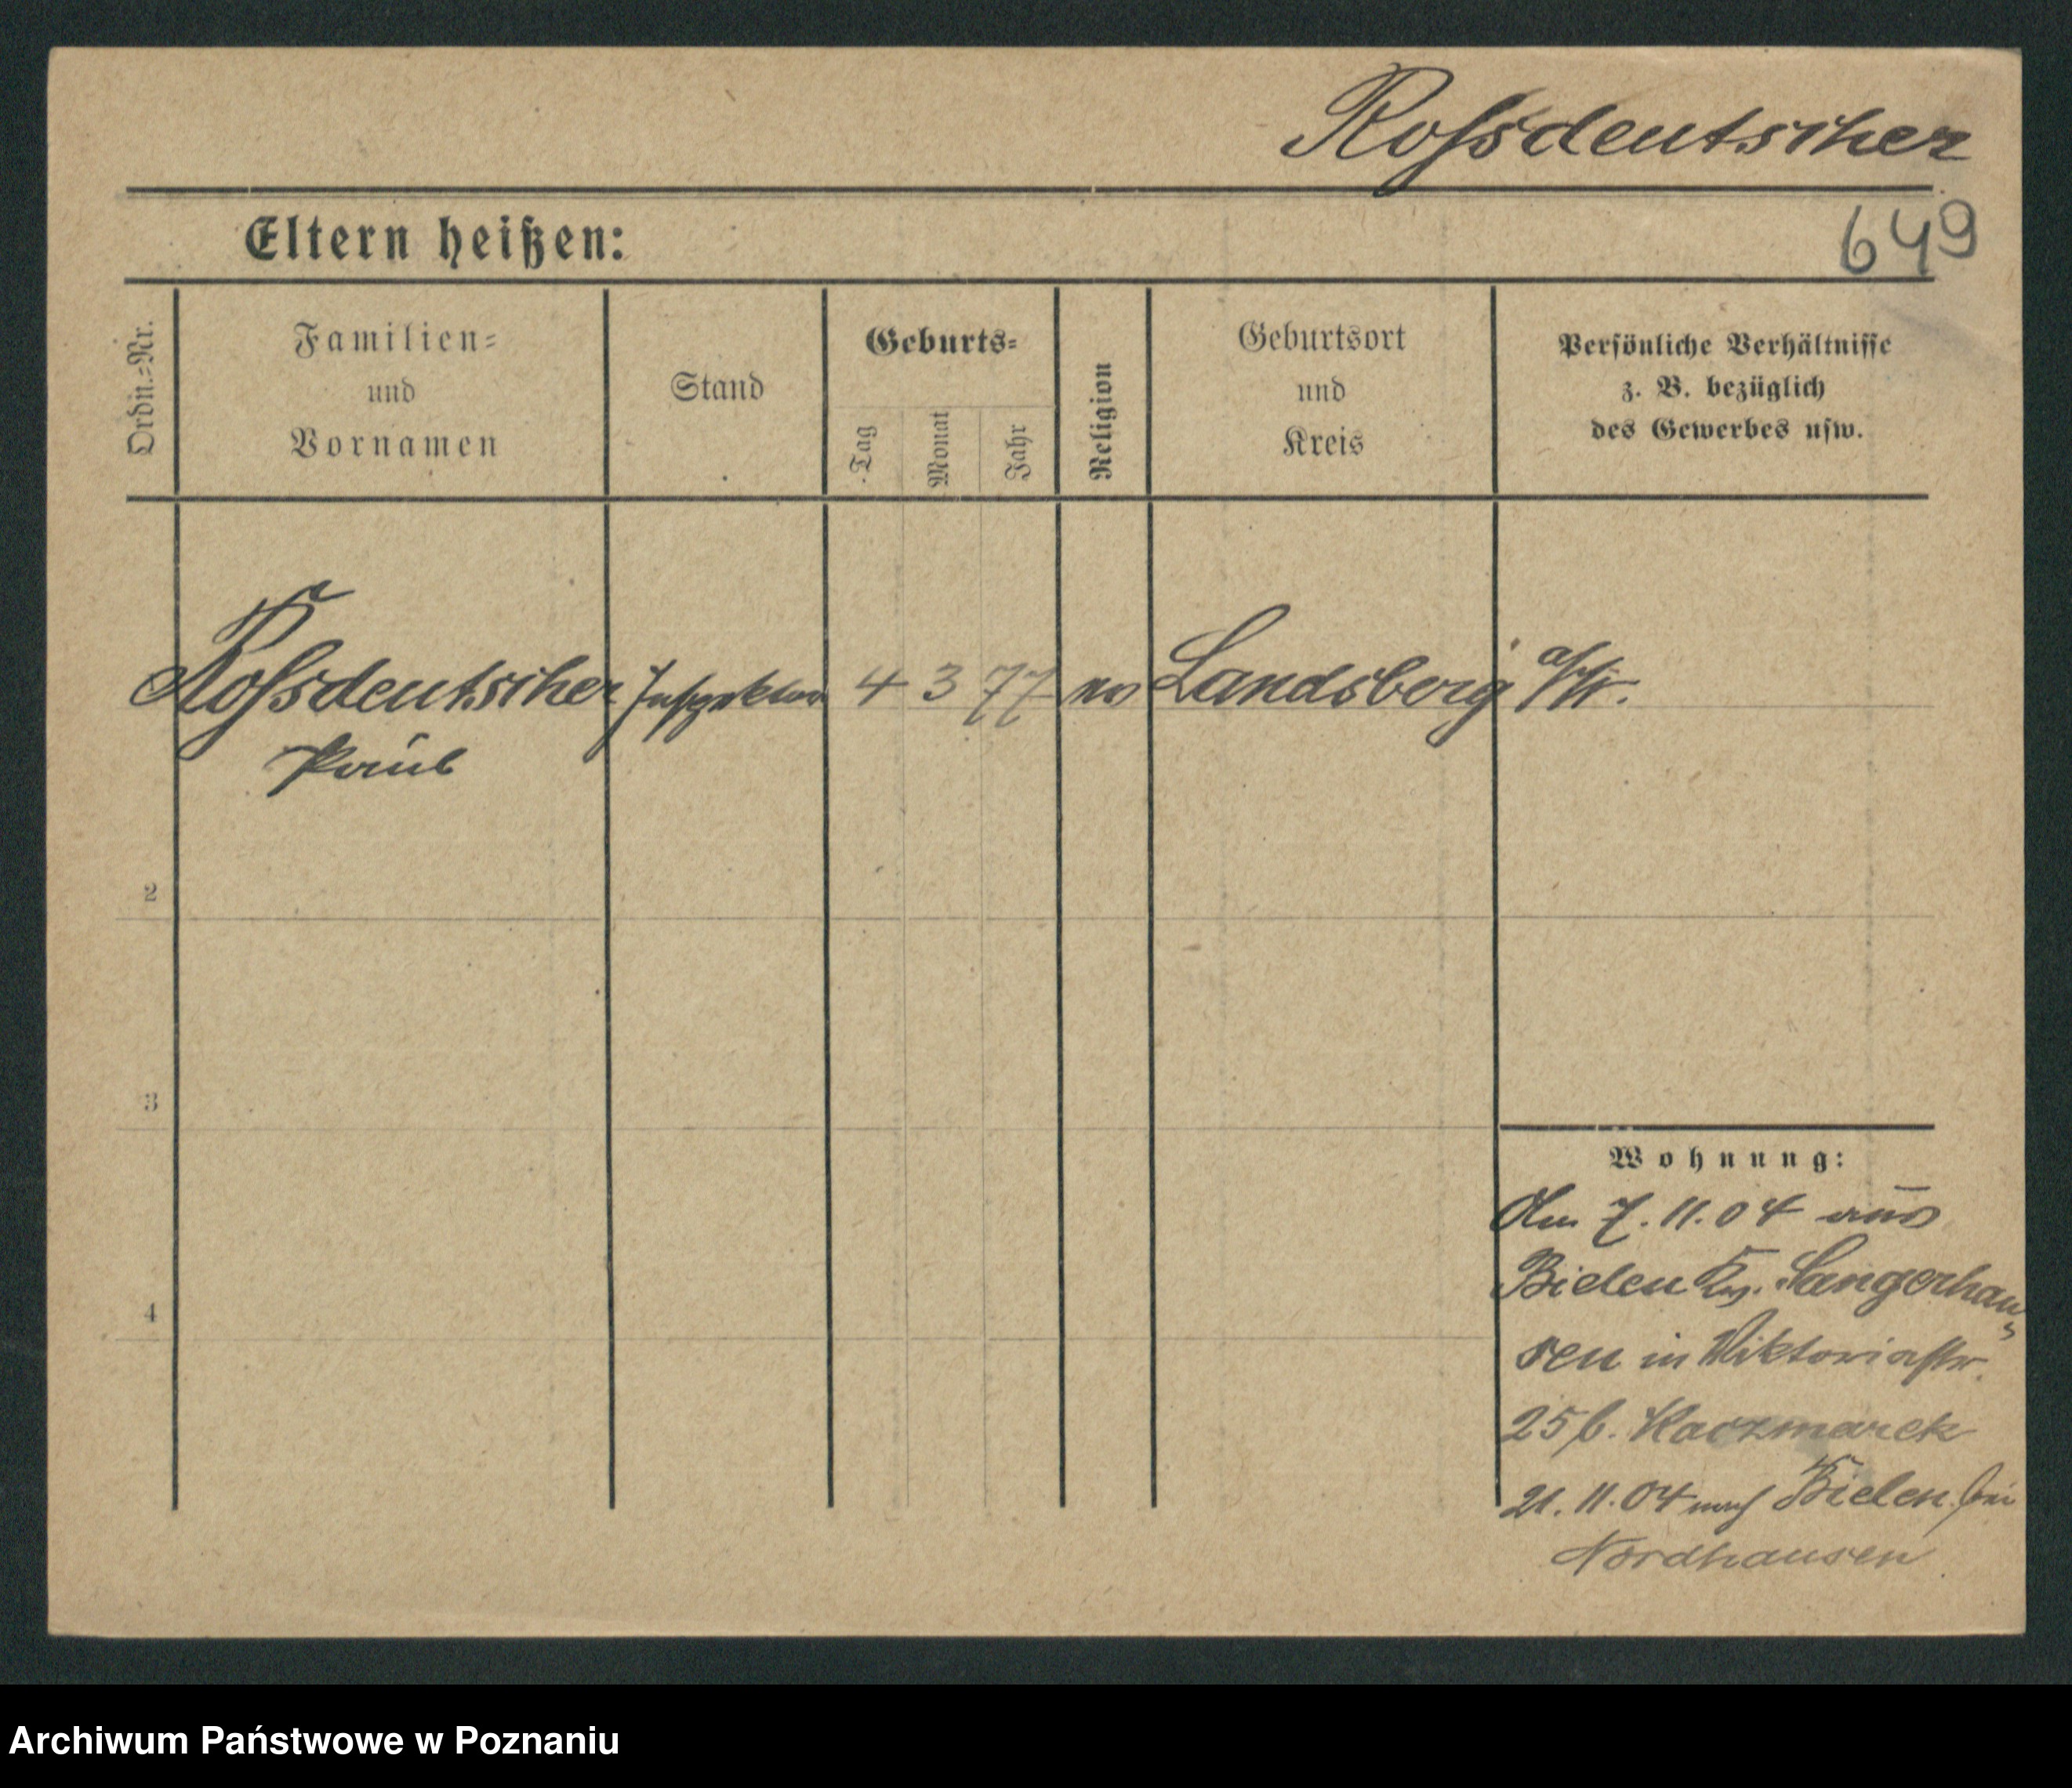 Roſsdeutscher
649
Eltern heißen:
Ordn.-Nr.
Familien-
und
Vornamen
Stand
Geburts-
Tag
Monat
Jahr
Religion
Geburtsort
und
Kreis
Persönliche Verhältnisse
z. B. bezüglich
des Gewerbes usw.
Roſsdeutscher Inspektor 4 3 77 Landsberg a/W.
Paul
2
3
4
Wohnung:
Am 7.11.04 aus
Bielen Krs. Sangerhau-
sen in Viktoriastr.
25 b. Kaczmarek
21.11.04 nach Bielen bei
Nordhausen
Archiwum Państwowe w Poznaniu